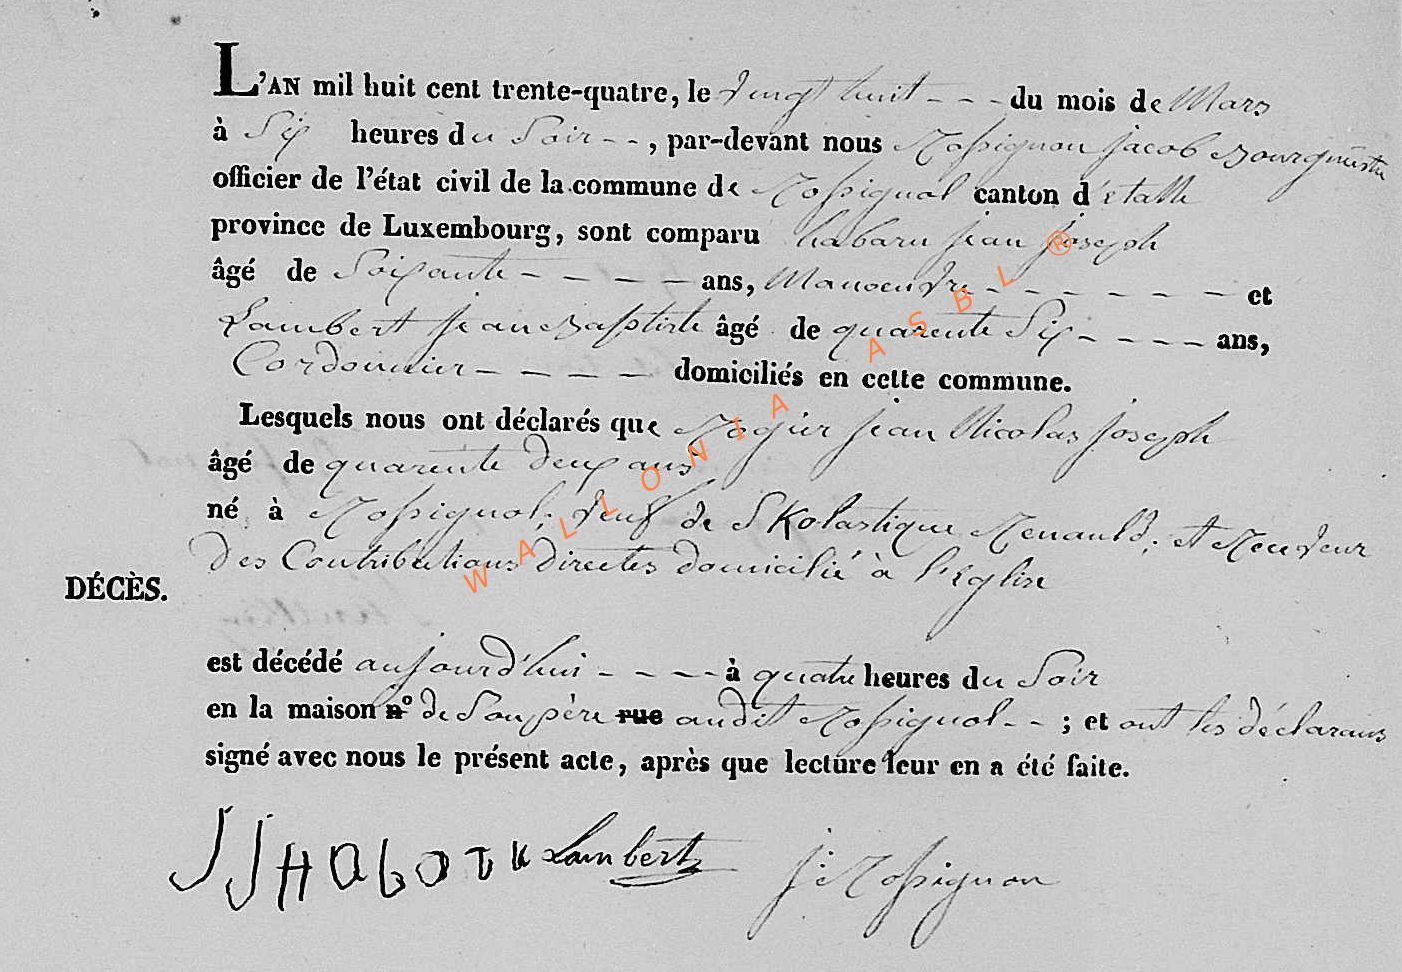 L'AN mil huit cent trente-quatre, le vingt huit - - - du mois de Mars
à Six heures du Soir - - , par-devant nous Rossignon Jacob Bourgmestre
officier de l'état civil de la commune de Rossignol canton d'etalle
province de Luxembourg, sont comparu habaru jean joseph
âgé de Soixante - - - - ans, Manoeuvre - - - - - - et
Lambert jean Baptiste âgé de quarente Six - - - - ans,
Cordonnier - - - - domiciliés en cette commune.
Lesquels nous ont déclarés que Rogier jean Nicolas joseph
âgé de quarente deux ans
né à Rossignol, veuf de Skolastique Renauld, et Receveur
des Contributions directes domicilié à l'Eglise
DÉCÈS.
est décédé aujourd'hui - - - - à quatre heures du Soir
en la maison n° de Son père rue audit Rossignol - - ; et ont les déclarans
signé avec nous le présent acte, après que lecture leur en a été faite.
JJ Habaru Lambert j: Rossignon
WALLONIA ASBL ®